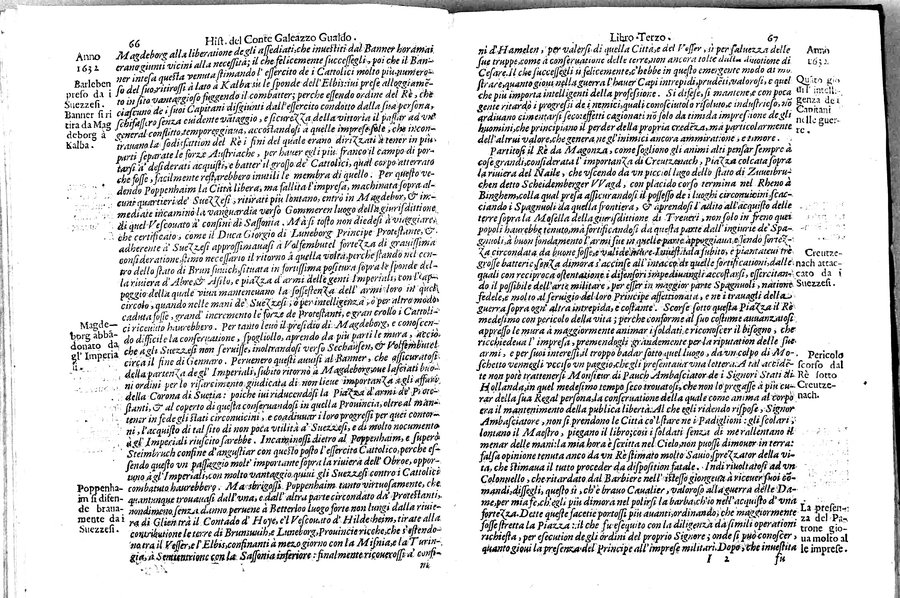 66
Hist. del Conte Galeazzo Gualdo.
Anno
1632
Barleben
preso da i
Suezzesi.
Banner si ri
tira da Mag
deborg à
Kalba.
Magde-
borg abbã-
donato da
gl'Imperia
li.
Poppenha-
im si difen-
de brana-
mente da i
Suezzesi.
Magdeborg alla liberatione degli assediati, che inuestiti dal Banner horamai
erano giunti vicini alla necessità; il che felicemente successegli, poi che il Ban-
ner intesa questa venuta stimando l'essercito de i Cattolici molto più numero-
so del suo ritirossi à lato à Kalba sù le sponde dell'Elbis; iui prese alloggiamẽ-
to in sito vantaggioso fuggendo il combatter; perche essendo ordine del Rè, che
ciascuno de i suoi Capitani disgiunti dall'essercito condotto dalla sua persona,
schifassero senza euidente vantaggio, e sicurezza della vittoria il passar ad vn
general conflitto, temporeggiaua, accostandosi à quelle imprese sole, che incon-
trauano la sodisfattion del Rè i fini del quale erano dirizzati à tener in più
parti separate le forze Austriache, per hauer egli più franco il campo di por-
tarsi à desiderati acquisti, e batter il grosso de' Cattolici, qual corpo atterrato
che fosse, facilmente restarebbero inutili le membra di quello. Per questo ve-
dendo Poppenhaim la Città libera, ma fallita l'impresa, machinata sopra al-
cuni quartieri de' Suezzesi, ritirati più lontano, entrò in Magdebor, & im-
mediate incaminò la vanguardia verso Gommeren luogo della giurisdittione
di quel Vescouato à confini di Sassonia. Mà sì tosto non diedesi à viaggiare,
che certificato, come il Duca Giorgio di Luneborg Principe Protestante, &
adherente à Suezzesi approssimauasi à Volfembutel fortezza di grauissima
consideratione, stimò necessario il ritorno à quella volta, perche stando nel cen-
tro dello stato di Brunsuich, situata in fortissima positura sopra le sponde del-
la riuiera d'Abre, & Asilo, e piazza d'armi delle genti Imperiali, con l'ap-
poggio della quale viua manteneuano la sossestenza dell'armi loro in quel
circolo, quando nelle mani de' Suezzesi, ò per intelligenza, ò per altro modo
caduta fosse, grand' incremento le forze de Protestanti, e gran crollo i Cattoli-
ci riceuuto haurebbero. Per tanto leuò il presidio di Magdeborg, e conoscen-
do difficile la conseruatione, spogliollo, aprendo da più parti le mura, acciò
che agli Suezzesi non seruisse, inoltrandosi verso Sechausen, & Volfembutel
circa il fine di Gennaro. Peruenero questi auuisi al Banner, che assicuratosi
della partenza de gl' Imperiali, subito ritornò à Magdeborg, oue lasciati buo-
ni ordini per lo risarcimento giudicata di non lieue importanza à gli affari
della Corona di Suetia: poiche iui riducendosi la Piazza d'armi de' Prote-
stanti, & al coperto di questa conseruandosi in quella Prouincia, oltre al man-
tener in fede gli stati circonuicini, e coadiuuar i loro progressi per quei contor-
ni, l'acquisto di tal sito di non poca vtilità a' Suezzesi, e di molto nocumento
à gl'Imperiali riuscito sarebbe. Incaminossi dietro al Poppenhaim, e superò
Steimbruch confine d'angustiar con questo posto l'essercito Cattolico, perche es-
sendo questo vn passaggio molt' importante sopra la riuiera dell'Obroe, oppor-
tuno à gl'Imperiali, con molto vantaggio quiui gli Suezzesi contro i Cattolici
combatuto haurebbero. Ma sbrigossi Poppenhaim tanto virtuosamente, che
quantunque trouauasi dall'vna, e dall'altra parte circondato da' Protestãti,
nondimeno senza danno peruenne à Betterloo luogo forte non lungi dalla riuie-
ra di Glien trà il Contado d'Hoye, e'l Vescouato d'Hildesheim, tirate alla
contributione le terre di Brunswich, e Luneborg, Prouincie ricche, che s'esten do-
no trà il Vesser, e l'Elbis, confinanti à mezo giorno con la Misnia, e la Turin-
gia, à Sententrione con la Sassonia inferiore: finalmente ricouerossi à confi-
ni
Libro Terzo.
67
ni d'Hamelen, per valersi di quella Città, e del Vesser, sì per saluezza delle
sue truppe, come à conseruatione delle terre, non ancora tolte dalla diuotione di
Cesare. Il che successegli sì felicemente, c'hebbe in questo emergente modo di mo-
strare, quanto gioui nella guerra l'hauer Capi intrepidi, prudẽti, valorosi, e quel
che più importa intelligenti della professione. Si difese, si mantenne, e con poca
gente ritardò i progressi de i nemici, quali conosciutolo risoluto, e industrioso, nõ
ardiuano cimentarsi seco effetti cagionati nõ solo da tima impressione de gli
huomini, che principiano il perder della propria credẽza, ma particolarmente
dell'altrui valore, che genera ne gl'inimici ancora ammiratione, e timore.
Partitosi il Rè da Magonza, come sogliono gli animi alti pensar sempre à
cose grandi, considerata l'importanza di Creutzenach, Piazza colcata sopra
la riuiera del Naile, che vscendo da vn picciol lago dello stato di Zuuenbru-
chen detto Scheidemberger VVagd, con placido corso termina nel Rheno à
Binghem, colla qual presa assicurandosi il possesso de i luoghi circonuicini, scac-
ciando i Spagnuoli da quella frontiera, & aprendosi l'adito all'acquisto delle
terre sopra la Mosella della giurisdittione di Treueri, non solo in freno quei
popoli haurebbe tenuto, mà fortificandosi da questa parte dall'ingiurie de' Spa-
gnuoli, à buon fondamento l'armi sue in quelle parte appoggiaua, e sendo fortez-
za circondata da buone fosse, e valide mure. Inuestilla da subito, e piantateui trè
grosse batterie, senza dimora s'accinse all'attacco di quelle fortificationi, dalle
quali con reciproca ostentatione i difensori impediuangli accostarsi, essercitan-
do il possibile dell'arte militare, per esser in maggior parte Spagnuoli, natione
fedele, e molto al seruigio del loro Principe affettionata, e ne i trauagli della
guerra sopra ogni altra intrepida, e costante. Scorse sotto questa Piazza il Rè
medesimo con pericolo della vita; perche conforme al suo costume auuanzatosi
appresso le mura à maggiormente animar i soldati, e riconoscer il bisogno, che
richiedeua l'impresa, premendogli grandemente per la riputatione delle sue
armi, e per suoi interessi, il troppo badar sotto quel luogo, da vn colpo di Mo-
schetto vennegli vcciso vn paggio, che gli presentaua vna lettera. A tal accidẽ-
te non potè trattenersi Monsieur di Paucò Ambasciator de i Signori Stati di
Hollanda, in quel medesimo tempo seco trouatosi, che non lo pregasse à più cu-
rar della sua Regal persona, la conseruatione della quale come anima al corpo
era il mantenimento della publica libertà. Al che egli ridendo rispose, Signor
Ambasciatore, non si prendono le Città co'l stare ne i Padiglioni: gli scolari;
lontano il Maestro, piegano il libro; così i soldati senza di me rallentano il
menar delle mani: la mia hora è scritta nel Cielo, non puossi dimouer in terra:
falsa opinione tenuta anco da vn Rè stimato molto Sauio sprezzator della vi-
ta, che stimaua il tutto proceder da dispositione fatale. Indi riuoltatosi ad vn
Colonnello, che ritardato dal Barbiere nell'istesso giongeua à riceuer suoi co-
mandi, dissegli, questo sì, ch'è brauo Caualier, valoroso alla guerra delle Da-
me, per mia fè, ch'egli più dimora in pulirsi la barba, ch'io nell'acquisto d'vna
fortezza. Dette queste facetie portossi più auanti, ordinando, che maggiormente
fosse stretta la Piazza: il che fu eseguito con la diligenza da simili operationi
richiesta, per esecution de gli ordini del proprio Signore; onde si può conoscere,
quanto gioui la presenza del Principe all'imprese militari. Dopò, che inuestita
I 2
fù
Anno
1632.
Quãto gio
ui l'intelli-
genza de i
Capitani
nelle guer-
re.
Creutze-
nach attac-
cato da i
Suezzesi.
Pericolo
scorso dal
Rè sotto
Creutze-
nach.
La presen-
za del Pa-
trone gio-
ua molto al
le imprese.